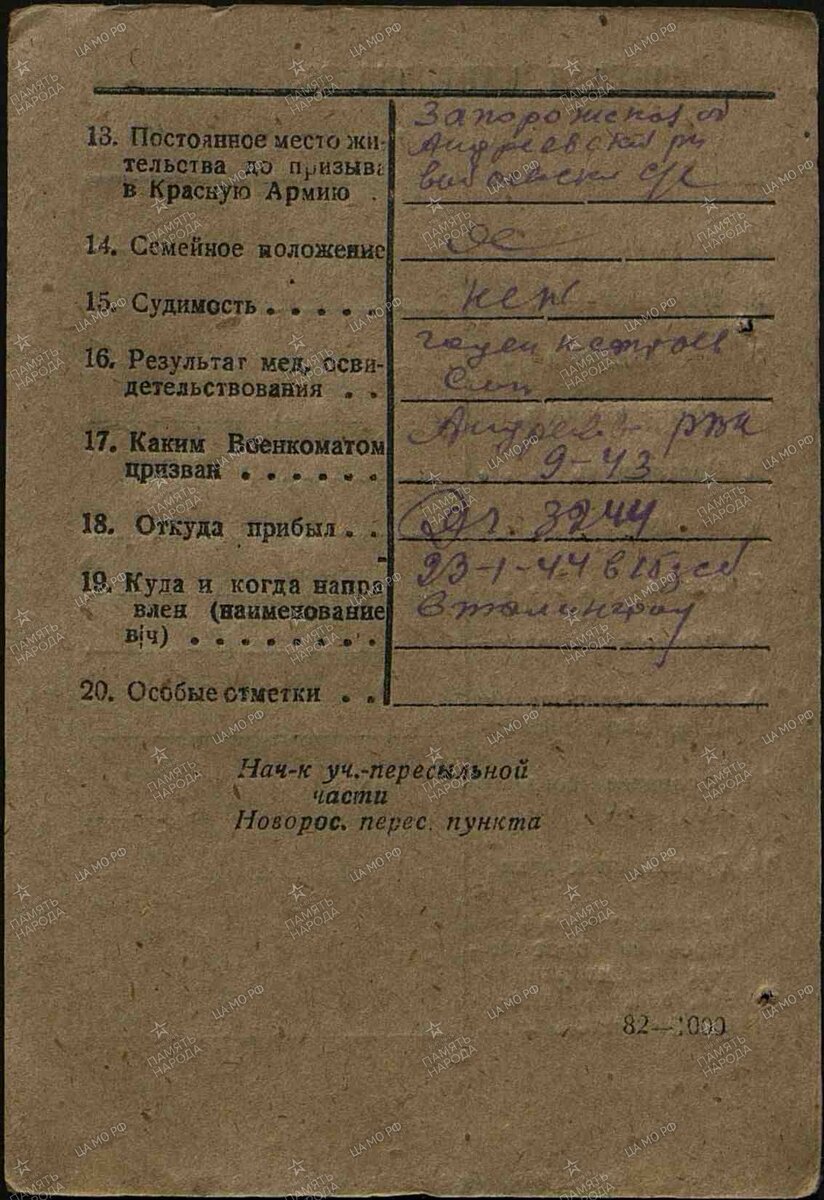 13. Постоянное место жи-
тельства до призыва
в Красную Армию .
Запорожская об
Андреевский рн
с/с
14. Семейное положение
15. Судимость . . . . .
нет
16. Результат мед. осви-
детельствования . .
годен к строев
17. Каким Военкоматом
призван . . . . . .
Андреев
9-43
18. Откуда прибыл . .
3244
19. Куда и когда напра
влен (наименование
в|ч) . . . . . . . .
23-1-44 в
20. Особые отметки . .
Нач-к уч.-пересыльной
части
Новорос. перес. пункта
82—1000
ПАМЯТЬ
НАРОДА
ЦА МО РФ